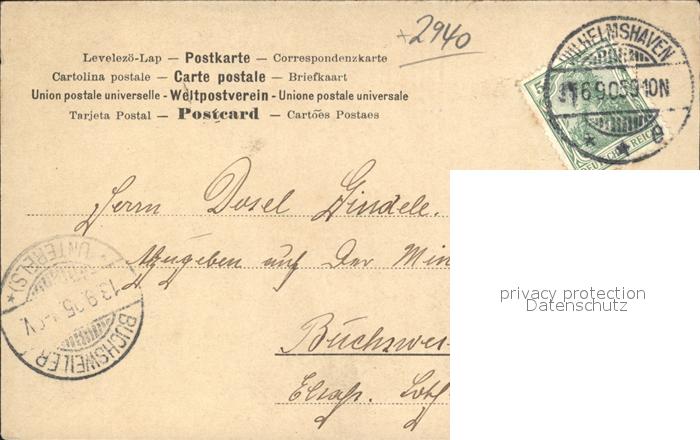 2940
Levelezö-Lap — Postkarte — Correspondenzkarte
Cartolina postale — Carte postale — Briefkaart
Union postale universelle - Weltpostverein - Unione postale universale
Tarjeta Postal — Postcard — Cartões Postaes
WILHELMSHAVEN
6 9.05 9-10N
* 4 e
5
DEUTSCHES REICH
Herrn Dosel Gindele.
Abzugeben auf Der Min
Buchswei
Elsaß. Loth
(UNTERELS)
13.9.05.
BUCHSWEILER
privacy protection
Datenschutz